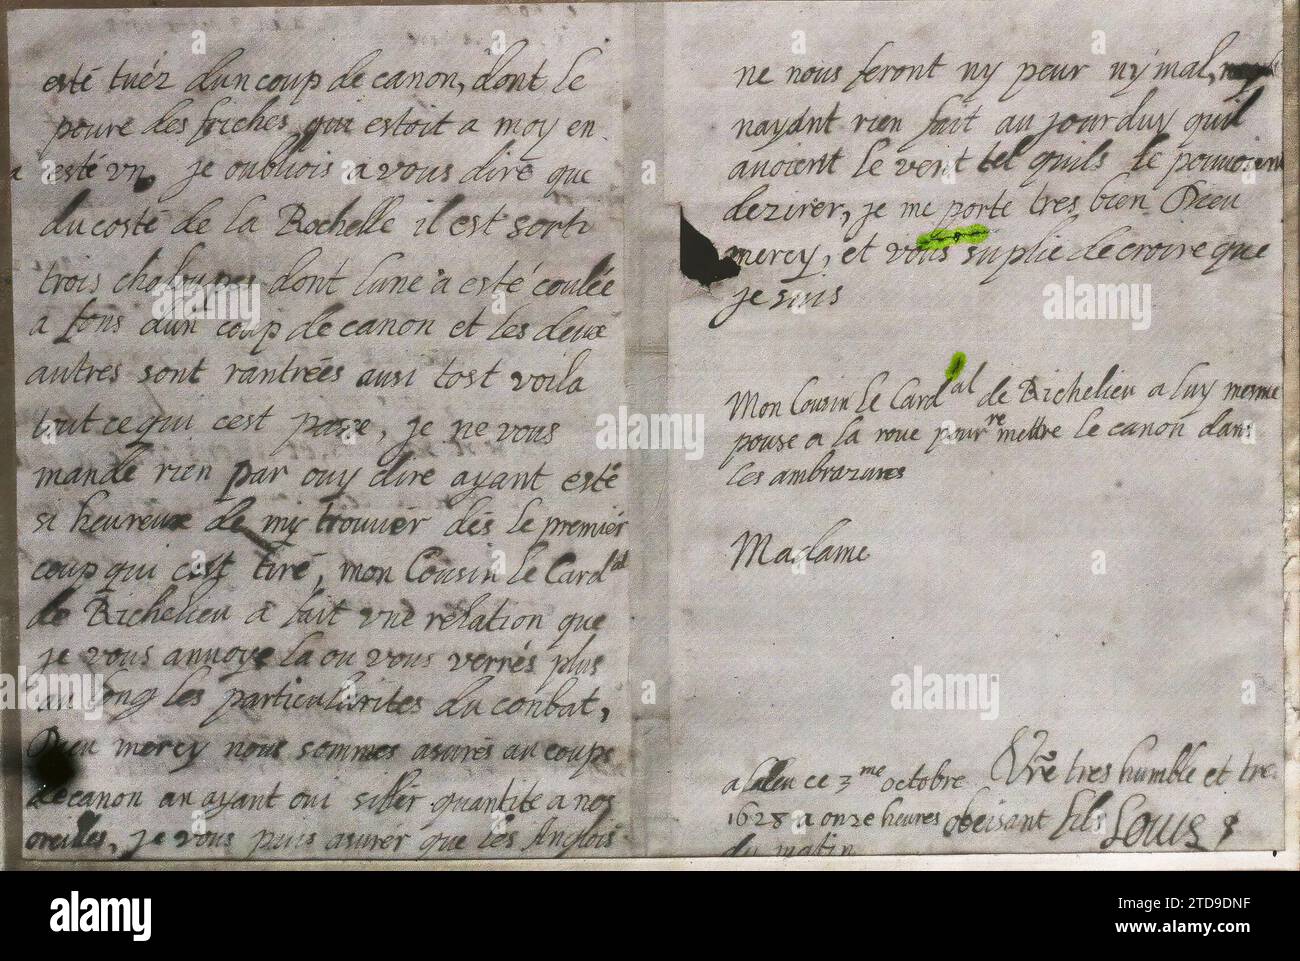 esté tuéz dun coup de canon, dont le
poure des friches qui estoit a moy en
a esté vn, je oubliois a vous dire que
du costé de la Rochelle il est sorti
trois chaloupes dont lune a esté coulée
a fons dun coup de canon et les deux
autres sont rantrées ausi tost voila
tout ce qui cest passe, je ne vous
mande rien par ouy dire ayant esté
si heureux de my trouver dés le premier
coup qui cest tiré, mon Cousin le Card^al
de Richelieu a fait vne relation que
je vous annoye la ou vous verrés plus
au long les particularites du conbat,
Dieu mercy nous sommes asurés au coups
de canon an ayant oui siller quantite a nos
oreilles, je vous puis asurer que les Anglois
ne nous feront ny peur ny mal,
nayant rien fait au jourduy quil
auoient le vent tel quils le pouvoient
dezirer, je me porte tres bien Dieu
mercy, et vous suplie de croire que
je suis
Mon Cousin le Card^al de Richelieu a luy mesme
pousé a la roue pour remettre le canon dans
les ambrazures
Madame
Vre tres humble et tre
a ce 3^me octobre
1628 a onze heures obeisant fils Louis
du matin
alamy
Image ID: 2TD9DNF
www.alamy.com